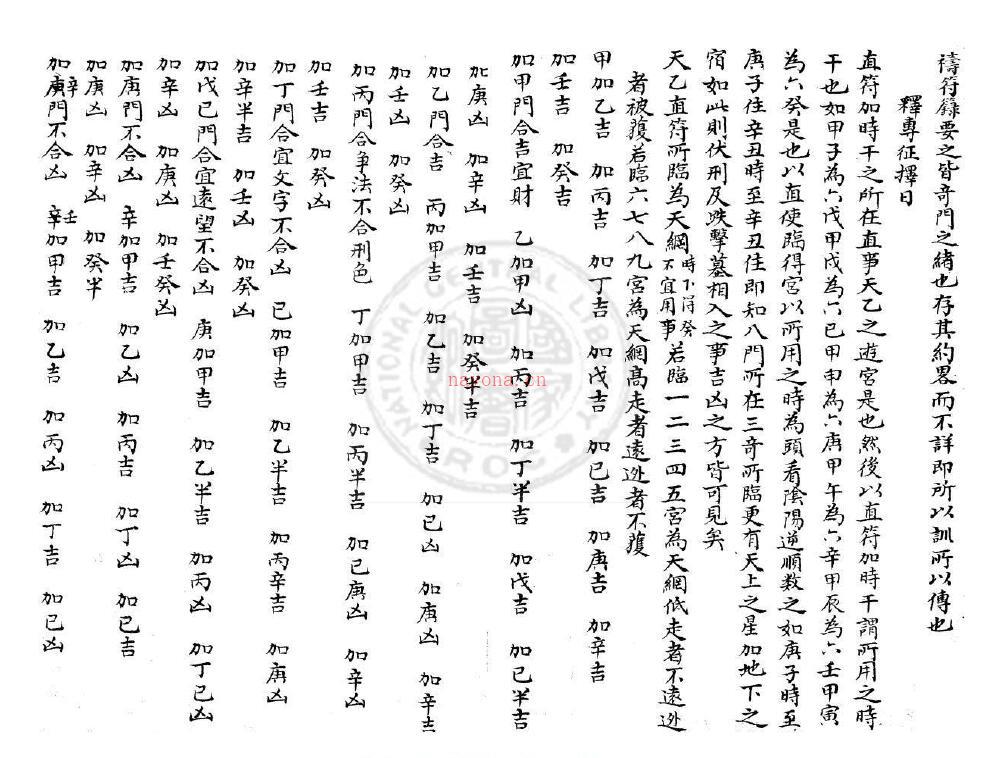 禱符籙要之皆奇門之緒也存其約畧而不詳即所以訓所以傳也
釋專征擇日
直符加時干之所在直事天乙之遊宮是也然後以直符加時干謂所用之時
干也如甲子為六戊甲戌為六己甲申為六庚甲午為六辛甲辰為六壬甲寅
為六癸是也以直使臨得宮以所用之時為頭看陰陽道順数之如庚子時至
庚子住辛丑時至辛丑住即知八門所在三奇所臨更有天上之星加地下之
宿如此則伏刑及迭擊墓相入之事吉凶之方皆可見矣
天乙直符所臨為天網時下得癸不宜用事若臨一二三四五宮為天網低走者不遠迯
者被獲若臨六七八九宮為天網高走者遠迯者不獲
甲加乙吉 加丙吉 加丁吉 加戊吉 加已吉 加庚吉 加辛吉
加壬吉 加癸吉
加甲門合吉宜財 乙加甲凶 加丙吉 加丁半吉 加戊吉 加已半吉
加庚凶 加辛凶 加壬吉 加癸半吉
加乙門合吉 丙加甲吉 加乙吉 加丁吉 加已凶 加庚凶 加辛吉
加壬凶 加癸凶
加丙門合争法不合刑色 丁加甲吉 加丙半吉 加已庚凶 加辛凶
加壬吉 加癸凶
加丁門合宜文字不合凶 已加甲吉 加乙半吉 加丙辛吉 加庚凶
加辛半吉 加壬凶 加癸凶
加戊已門合宜遠望不合凶 庚加甲吉 加乙半吉 加丙凶 加丁已凶
加辛凶 加庚凶 加壬癸凶
加庚門不合凶 辛加甲吉 加乙凶 加丙吉 加丁凶 加已吉
加庚凶 加辛凶 加癸半
加庚辛門不合凶 辛壬加甲吉 加乙吉 加丙凶 加丁吉 加已凶
NATIONAL CENTRAL LIBRARY
ROC